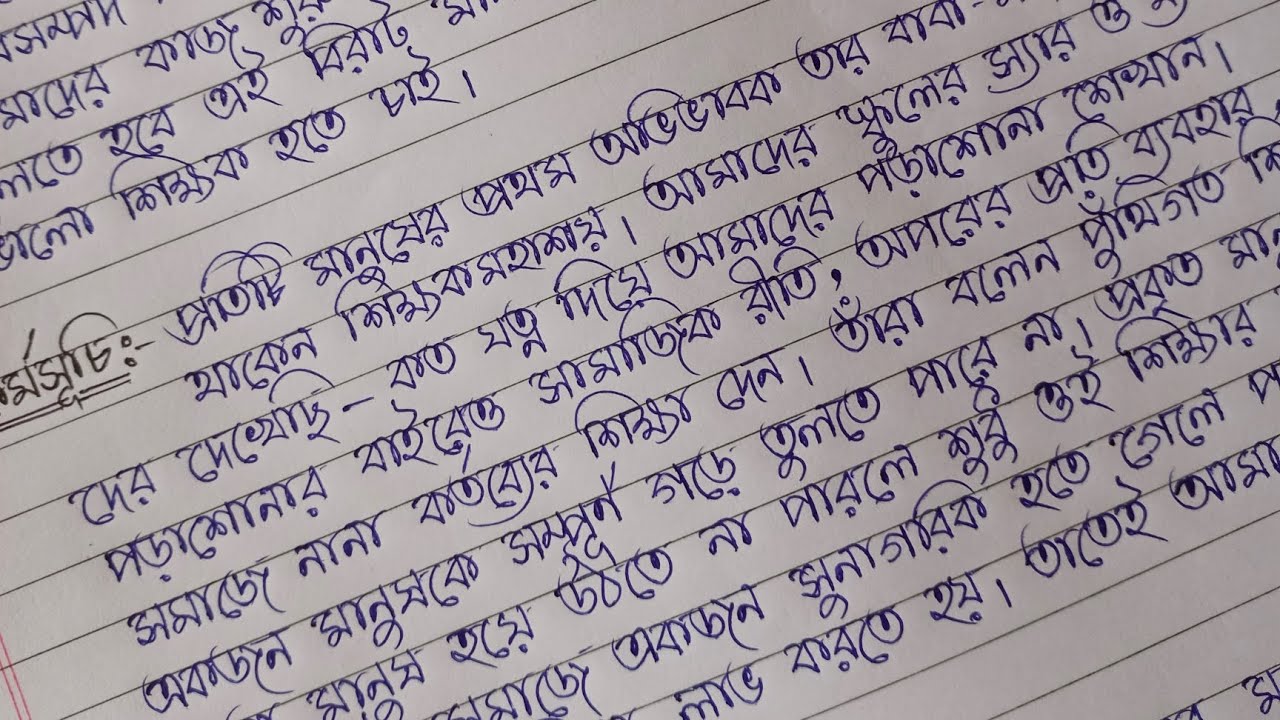 মাদের কাজ শুরু
লতে হবে এই বিরাট
ভালো শিক্ষক হতে চাই।
প্রতিটি মানুষের প্রথম অভিভাবক তার বাবা-
থাকেন শিক্ষকমহাশয়। আমাদের স্কুলের স্যার ও
দের দেখেছি - কত যত্ন দিয়ে আমাদের পড়াশোনা শেখান।
পড়াশোনার বাইরেও সামাজিক রীতি, অপরের প্রতি ব্যবহার,
সমাজে নানা কর্তব্যের শিক্ষা দেন। তাঁরা বলেন পুঁথিগত
একজন মানুষকে সম্পূর্ণ গড়ে তুলতে পারে না। প্রকৃত
মানুষ হয়ে উঠতে না পারলে শুধু ওই শিক্ষার
সমাজে একজন সুনাগরিক হতে গেলে
লাভ করতে হয়। তাতেই